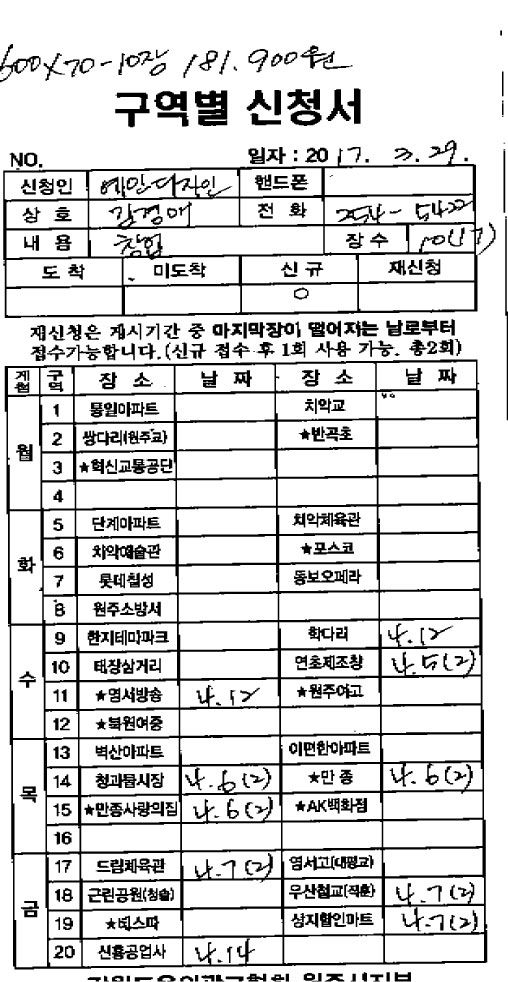 600X70-10장 181.900원
구역별 신청서
NO. 일자 : 2017. 3. 29.
신청인 예인디자인 핸드폰
상 호 김경애 전 화 254-5422
내 용 창업 장 수 10(17)
도 착 미도착 신 규 재신청
○
재신청은 게시기간 중 마지막장이 떨어지는 날로부터
접수가능합니다.(신규 접수 후 1회 사용 가능. 총2회)
게첨 구역 장 소 날 짜 장 소 날 짜
월 1 통일아파트 치악교
2 쌍다리(원주교) ★반곡초
3 ★혁신교통공단
4
화 5 단계아파트 치악체육관
6 치악예술관 ★포스코
7 롯데칠성 동보오페라
8 원주소방서
수 9 한지테마파크 학다리 4.12
10 태장삼거리 연초제조창 4.5(2)
11 ★영서방송 4.12 ★원주여고
12 ★북원여중
목 13 벽산아파트 이편한아파트
14 청과물시장 4.6(2) ★만 종 4.6(2)
15 ★만종사랑의집 4.6(2) ★AK백화점
16
금 17 드림체육관 4.7(2) 영서고(대평교)
18 근린공원(청솔) 우산철교(직훈) 4.7(2)
19 ★빅스파 성지할인마트 4.7(2)
20 신흥공업사 4.14